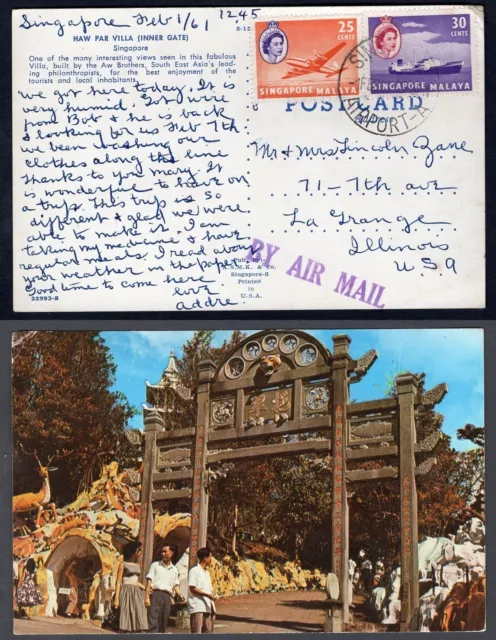 Singapore Feb 1/61
1245
HAW PAR VILLA (INNER GATE)
Singapore
One of the many interesting views seen in this fabulous
Villa, built by the Aw Brothers, South East Asia's lead-
ing philanthropists, for the best enjoyment of the
tourists and local inhabitants.
S-12
we got here today. It is
very humid. Got wire
from Bob & he is back
& looking for us Feb 7th
we been washing our
clothes along the line
thanks to you Mary. It
is wonderful to have on
a trip. This trip is so
different & glad we were
able to make it. I am
taking my medicine & have
regular meals. I read about
your weather in the paper.
Good time to come here.
love
addre.
32893-B
Pub. by:
A.S.M.K. & Co.
Singapore-6
Printed
in
U.S.A.
25
CENTS
SINGAPORE MALAYA
30
CENTS
SINGAPORE MALAYA
POST CARD
Mr & Mrs Lincoln Zane
71-7th ave
La Grange
Illinois
U.S.A
BY AIR MAIL